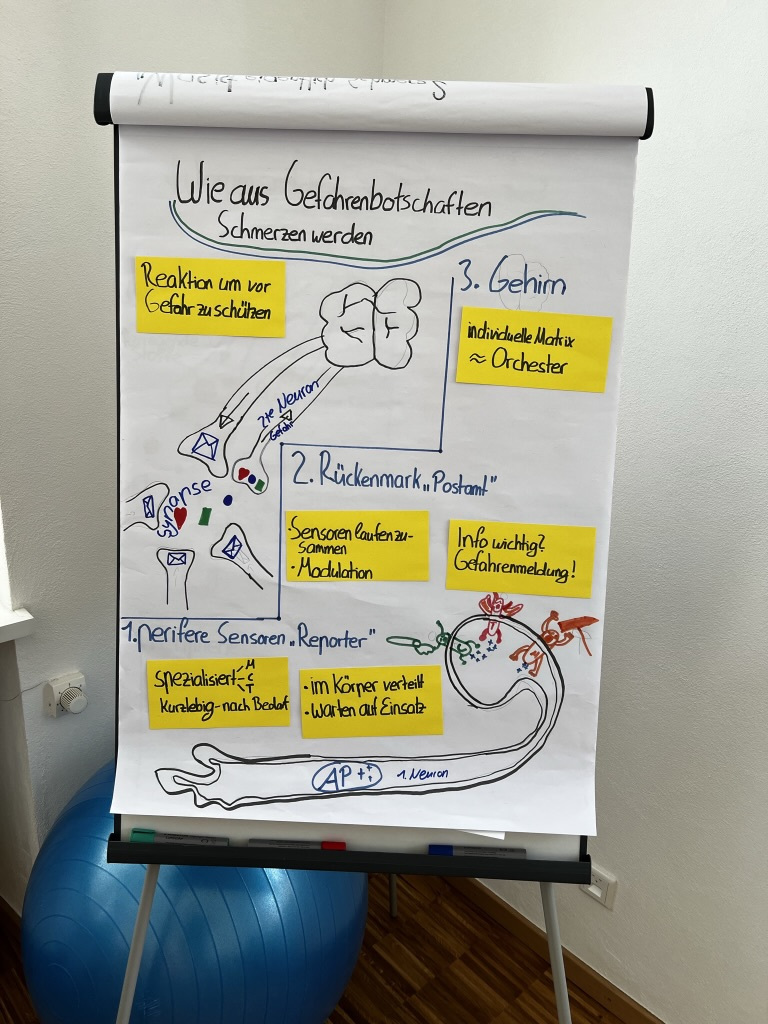 Wie aus Gefahrenbotschaften
Schmerzen werden
Reaktion um vor
Gefahr zu schützen
3. Gehirn
individuelle Matrix
≈ Orchester
2te Neuron
Gefahr
Synapse
2. Rückenmark „Postamt"
· Sensoren laufen zu-
sammen
· Modulation
Info wichtig?
Gefahrenmeldung!
1. perifere Sensoren „Reporter"
spezialisiert
M
C
T
Kurzlebig - nach Bedarf
· im Körper verteilt
· Warten auf Einsatz
AP +++
1. Neuron